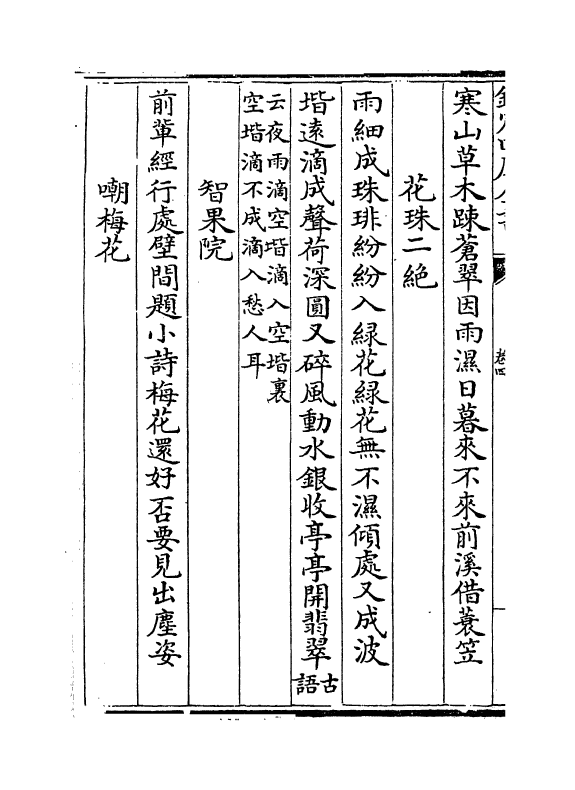 卷四
寒山草木踈蒼翠因雨濕日暮來不來前溪借蓑笠
花珠二絶
雨細成珠琲紛紛入緑花緑花無不濕傾處又成波
堦遠滴成聲荷深圓又碎風動水銀收亭亭開翡翠古語
云夜雨滴空堦滴入空堦裏
空堦滴不成滴入愁人耳
智果院
前輩經行處壁間題小詩梅花還好否要見出塵姿
嘲梅花